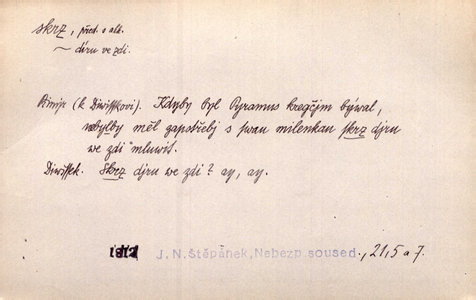 skrz, před. s ak.
~ díru ve zdi.
(k Diwisskovi). Kdyby byl Pyramus kregčjm býwal,
nebylby měl zapotřebj s swau milenkau skrz djru
we zdi mluwit.
Diwissek. Skrz djru we zdi? ay, ay.
J. N. Štěpánek, Nebezp. soused., 21, 5 a 7.